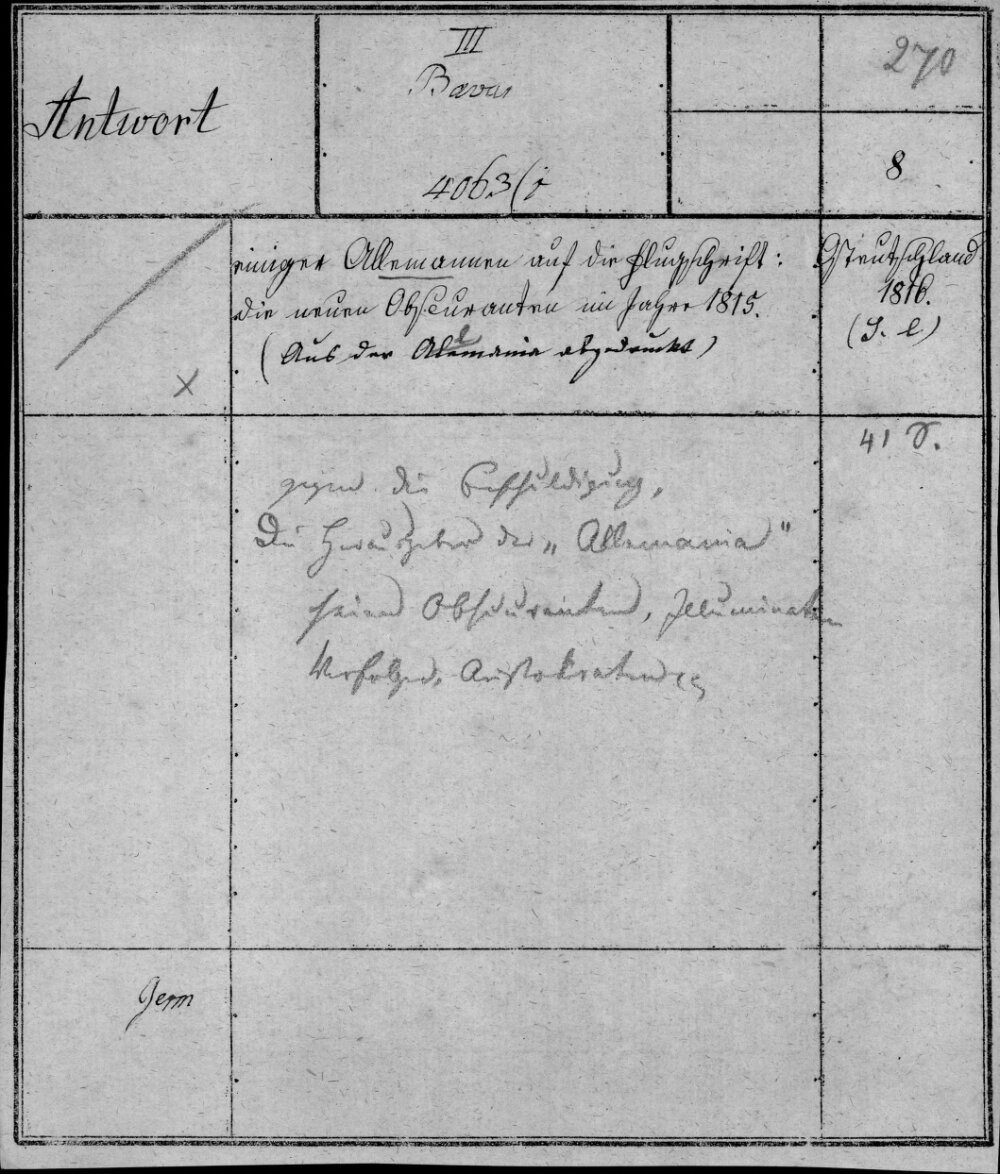 III
Bavar
270
Antwort
4063(i
8
einiger Allemannen auf die Flugschrift:
die neuen Obscuranten im Jahre 1815.
(Aus der Allemania abgedruckt)
Teutschland
1816.
(S. l)
X
41 S.
gegen die Beschuldigung,
Die Herausgeber der „Allemania"
seien Obscuranten, Illuminaten
Verfolger, Aristokraten
Germ